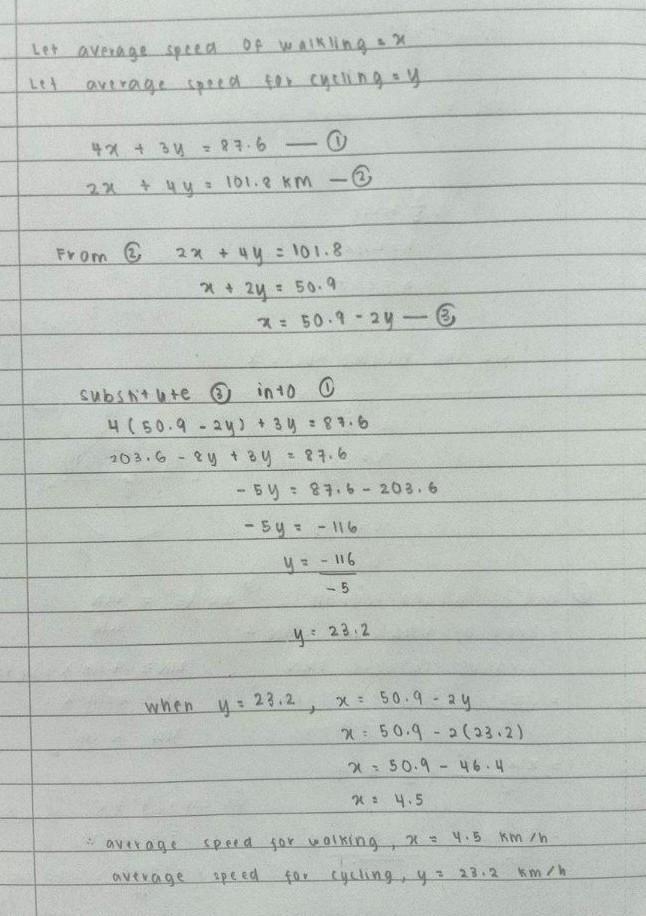 Let average speed of walkling = x
Let average speed for cycling = y
4x + 3y = 87.6 — ①
2x + 4y = 101.8 km — ②
From ② 2x + 4y = 101.8
x + 2y = 50.9
x = 50.9 - 2y — ③
substitute ③ into ①
4(50.9 - 2y) + 3y = 87.6
203.6 - 8y + 3y = 87.6
-5y = 87.6 - 203.6
-5y = -116
y = -116
-5
y = 23.2
when y = 23.2, x = 50.9 - 2y
x = 50.9 - 2(23.2)
x = 50.9 - 46.4
x = 4.5
∴ average speed for walking, x = 4.5 km/h
average speed for cycling, y = 23.2 km/h